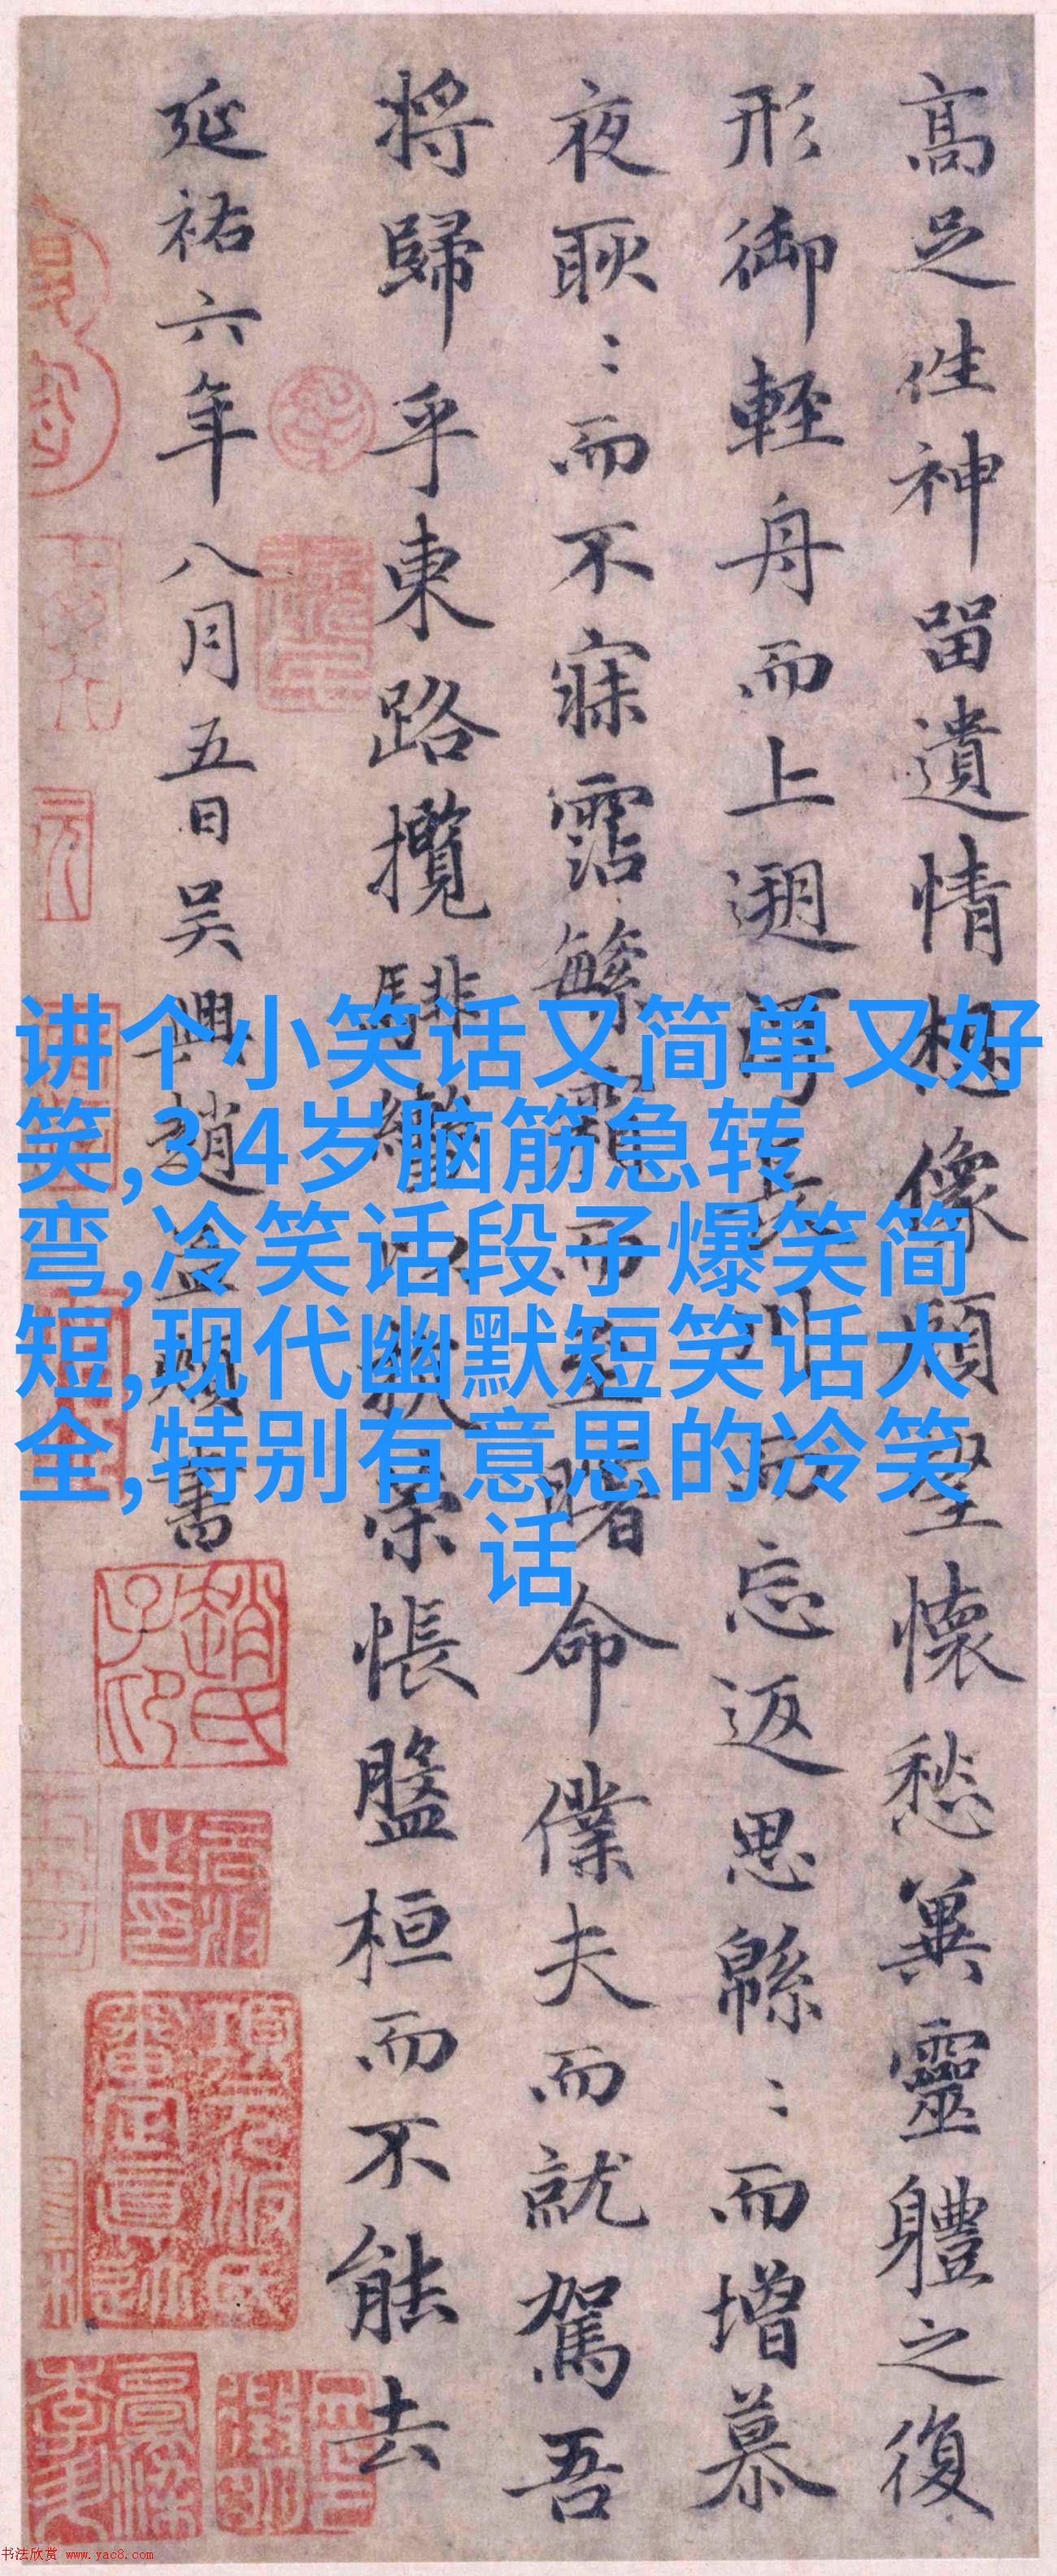 髙足往神留遺情想像顧望懷愁兾靈體之復
形御輕舟而上遡浮長川而忘返思緜〻而增慕
夜耿〻而不寐霑繁霜而至曙命僕夫而就駕吾
將歸乎東路攬騑轡以抗策悵盤桓而不能去
延祐六年八月五日吴興趙孟頫書
趙氏子印
項元汴氏審定真跡
讲个小笑话又简单又好
笑,3 4岁脑筋急转
弯,冷笑话段子爆笑简
短,现代幽默短笑话大
全,特别有意思的冷笑
话
书法欣赏 www.yac8.com